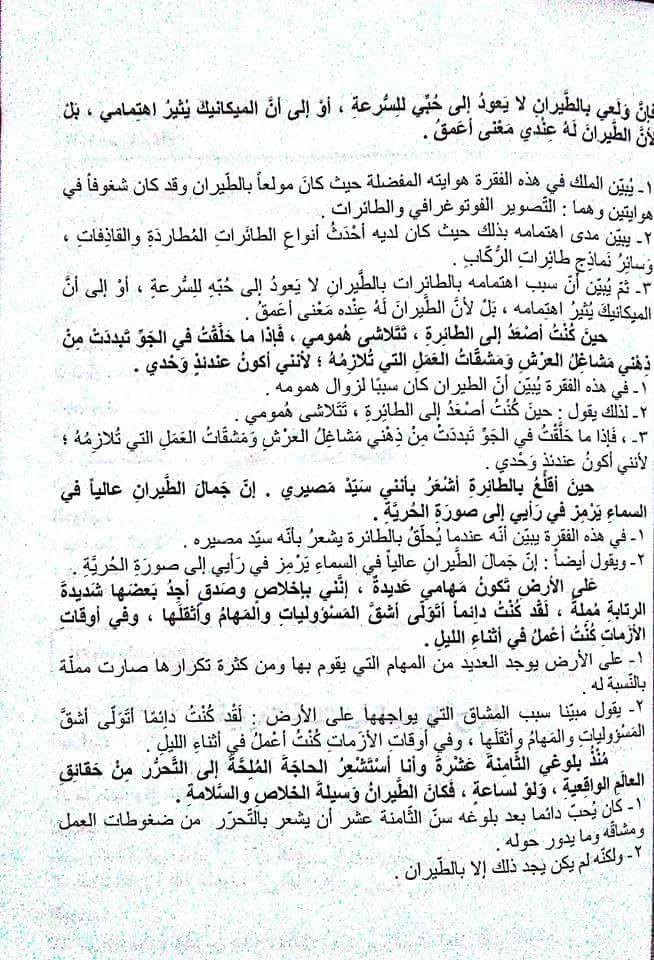 فإنَّ وَلَعي بالطَّيرانِ لا يَعودُ إلى حُبِّي للِسُّرعةِ ، أوْ إلى أنَّ الميكانيكَ يُثيرُ اهتمامي ، بَلْ
لأنَّ الطَّيرانَ لَهُ عِنْدي مَعْنى أعمَقُ .
١- يُبيّن الملك في هذه الفقرة هوايته المفضلة حيث كانَ مولعاً بالطّيرانِ وقد كان شغوفاً في
هوايتين وهما : التّصوير الفوتوغرافي والطائرات .
٢- يبيّن مدى اهتمامه بذلك حيث كان لديه أحْدَثُ أنواعِ الطائَراتِ المُطاردَةِ والقاذِفاتِ ،
وَسائِرُ نَماذِج طائِراتِ الرُّكّابِ .
٣- ثمَّ يُبيّن أنّ سبب اهتمامه بالطائرات بالطَّيرانِ لا يَعودُ إلى حُبّهِ للِسُّرعةِ ، أوْ إلى أنَّ
الميكانيكَ يُثيرُ اهتمامه ، بَلْ لأنَّ الطَّيرانَ لَهُ عِنْده مَعْنى أعمَقُ .
حينَ كُنْتُ أصْعَدُ إلى الطائِرةِ ، تَتَلاشى هُمومي ، فَإذا ما حَلَّقْتُ في الجَوِّ تَبددَتْ مِنْ
ذِهْني مَشاغِلُ العرْشِ وَمَشقَّاتُ العَمَلِ التي تُلازِمُهُ ؛ لأنني أكونُ عندئذٍ وَحْدي .
١- في هذه الفقرة يُبيّن أنّ الطيران كان سببًا لزوال همومه .
٢- لذلك يقول : حينَ كُنْتُ أصْعَدُ إلى الطائِرةِ ، تَتَلاشى هُمومي .
٣- ، فَإذا ما حَلَّقْتُ في الجَوِّ تَبددَتْ مِنْ ذِهْني مَشاغِلُ العَرْشِ وَمَشقَّاتُ العَمَلِ التي تُلازِمُهُ ؛
لأنني أكونُ عندئذٍ وَحْدي .
حينَ أقلَعُ بالطائِرةِ أشْعُرُ بأنني سَيّدُ مَصيري . إنّ جَمالَ الطَّيرانِ عالياً في
السماءِ يَرْمِز في رَأيي إلى صورَةِ الحُريَّةِ .
١- في هذه الفقرة يبيّن أنّه عندما يُحلّقُ بالطائرة يشعرُ بأنّه سيّد مصيره .
٢- ويقول أيضاً : إنّ جَمالَ الطَّيرانِ عالياً في السماءِ يَرْمِز في رَأيي إلى صورَةِ الحُريَّةِ .
عَلى الأرضِ تَكونُ مَهامي عَديدةٌ ، إنَّني بإخلاصٍ وصَدقٍ أجِدُ بَعضَها شَديدةَ
الرتابةِ مُملةٌ ، لَقَدْ كُنْتُ دائماً أتَوَلّى أشقَّ المَسْؤولياتِ والمَهامُ وأثقلَها ، وفي أوقاتِ
الأزماتِ كُنْتُ أعْملُ في أثناءِ الليلِ .
١- على الأرض يوجد العديد من المهام التي يقوم بها ومن كثرة تكرارها صارت مملّة
بالنّسبة له .
٢- يقول مبيّنا سبب المشاق التي يواجهها على الأرض : لَقَدْ كُنْتُ دائِمًا أتَوَلّى أشقَّ
المَسْؤولياتِ والمَهامُ وأثقلَها ، وفي أوقاتِ الأزماتِ كُنْتُ أعْملُ في أثناءِ الليلِ .
مُنْذُ بلوغي الثَّامِنةَ عَشْرةَ وأنا أسْتَشْعرُ الحاجةَ المُلِحَّةَ إلى التَّحرُّر مِنْ حَقائقِ
العالَمِ الواقعِيةِ ، وَلوْ لساعةٍ ، فَكانَ الطَّيرانُ وَسيلةَ الخلاصِ والسَّلامةِ .
١- كان يُحبّ دائما بعد بلوغه سنّ الثّامنة عشر أن يشعر بالتّحرّر من ضغوطات العمل
ومشاقّه وما يدور حوله .
٢- ولكنّه لم يكن يجد ذلك إلا بالطّيران .